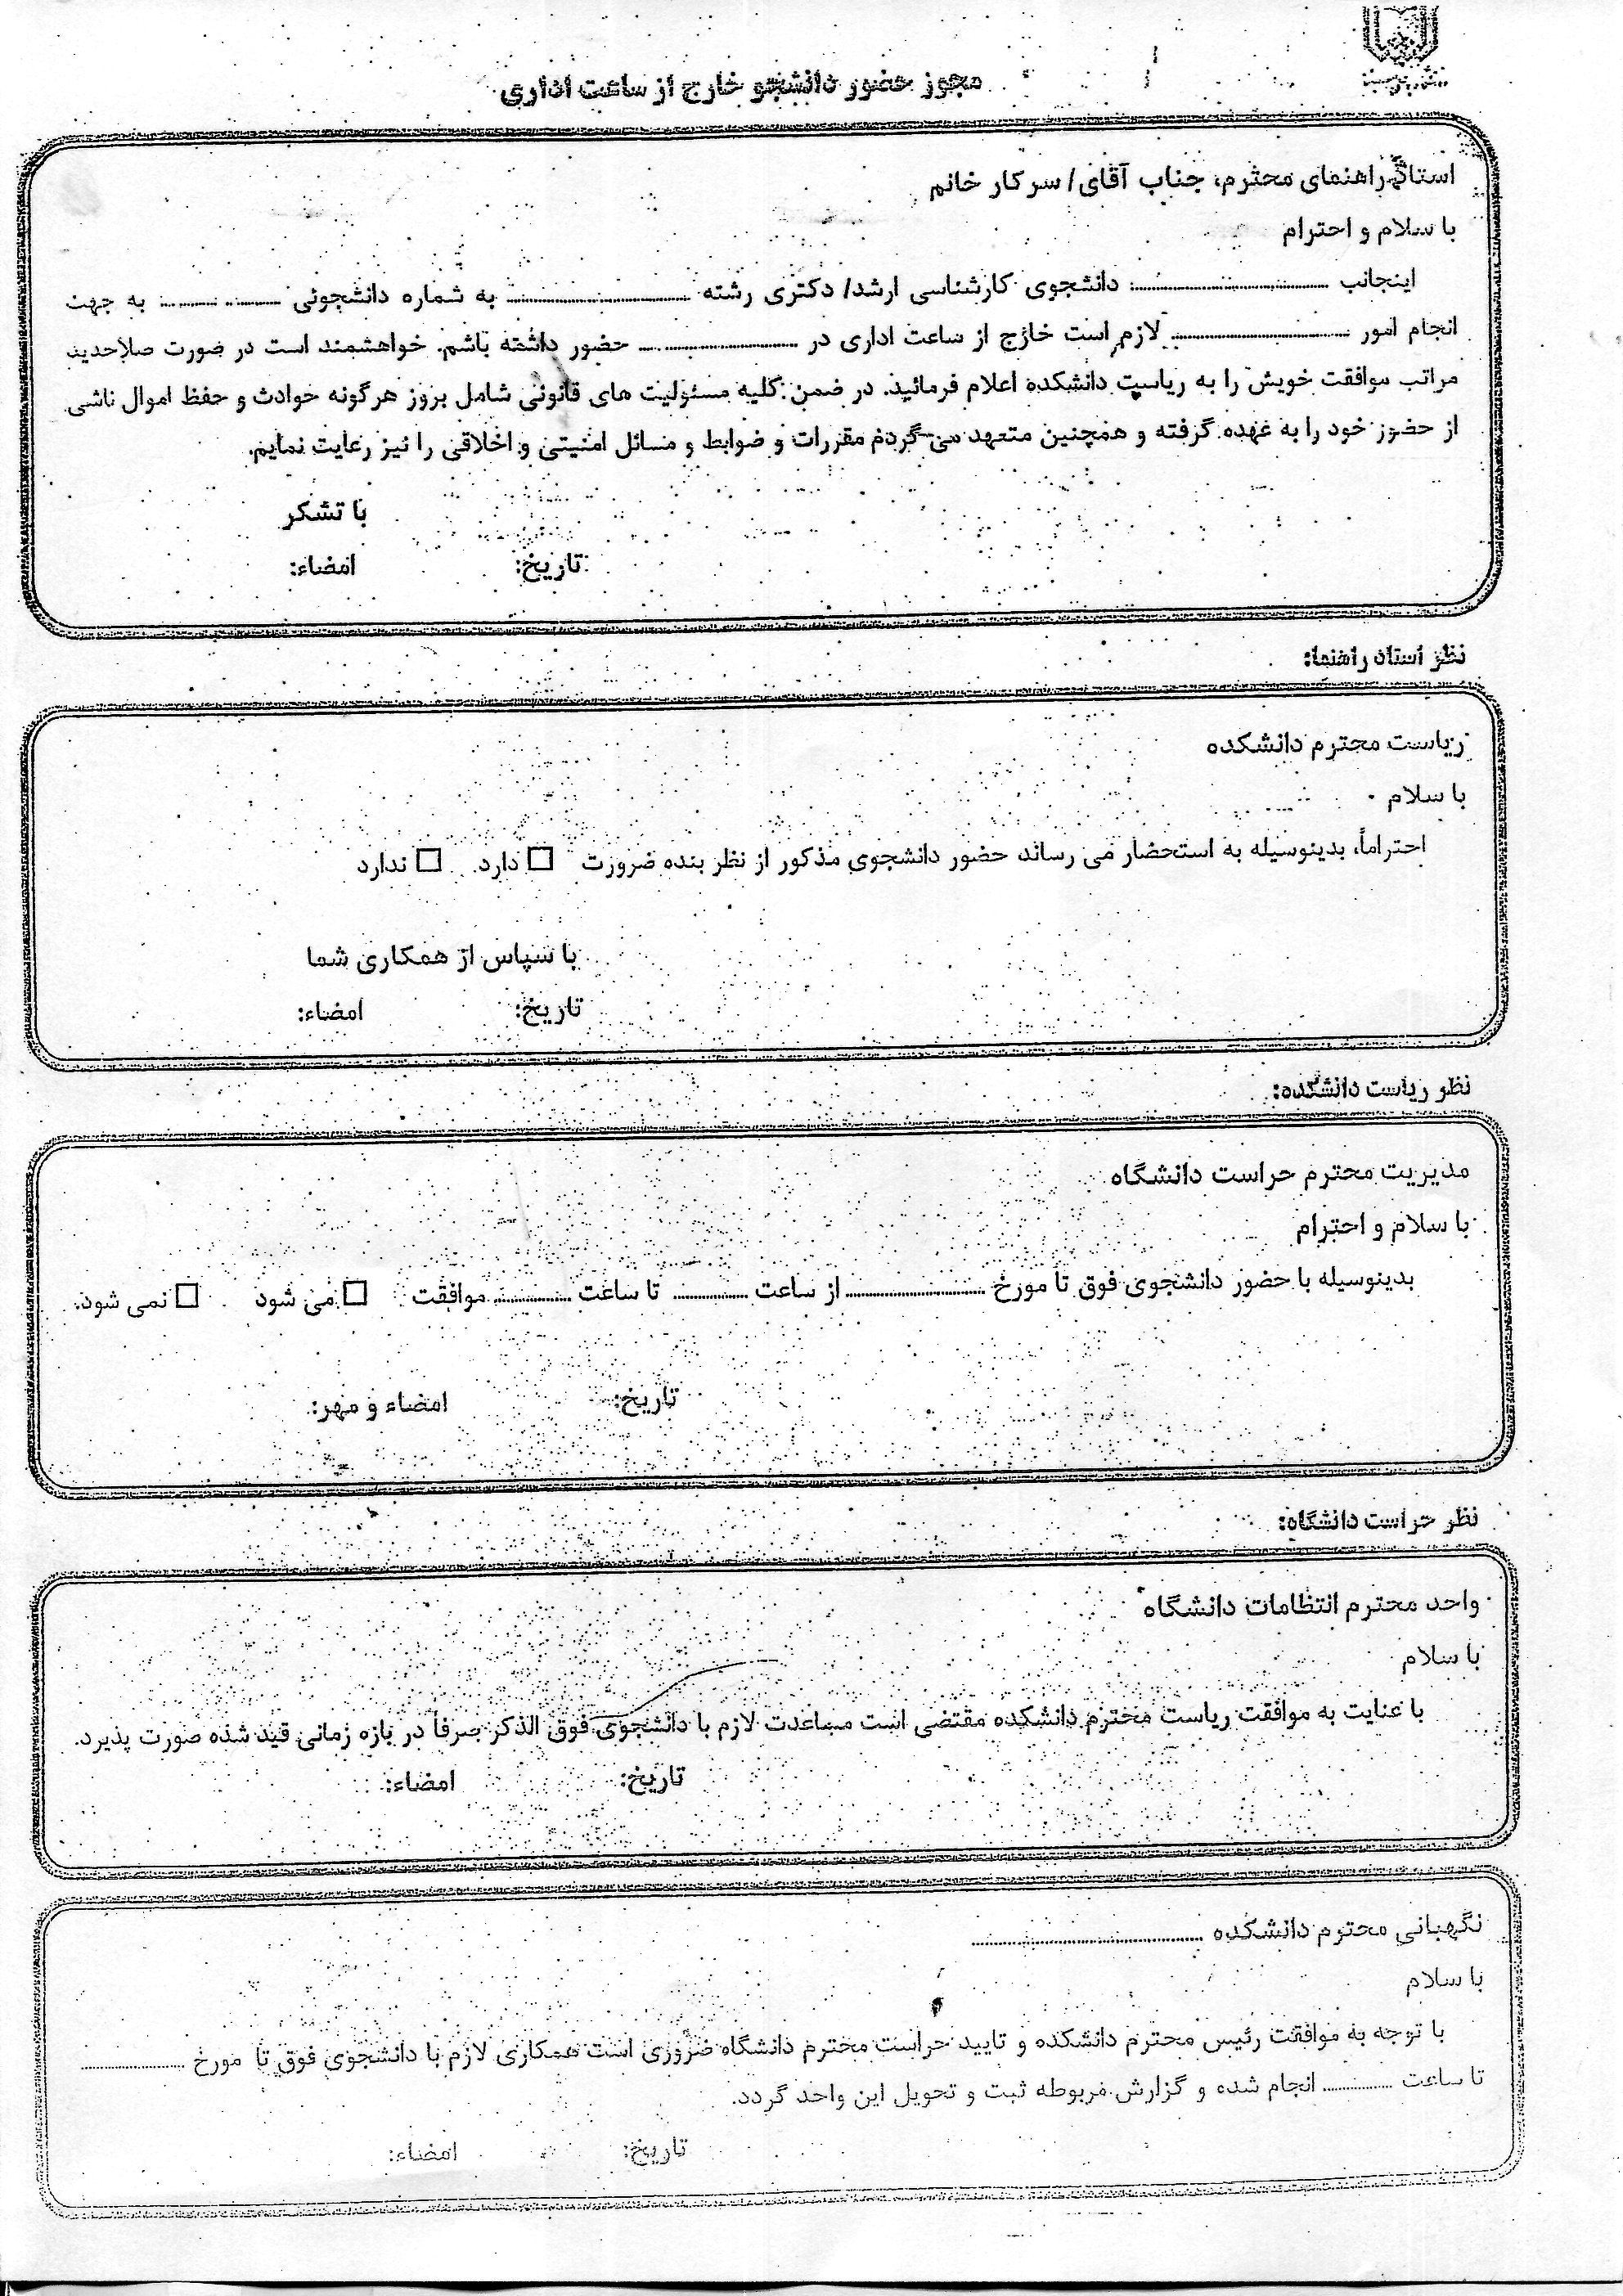 مجوز حضور دانشجو خارج از ساعت اداری
استاد راهنمای محترم، جناب آقای/ سرکار خانم
با سلام و احترام
اینجانب .................... دانشجوی کارشناسی ارشد/ دکتری رشته .................... به شماره دانشجوئی .................... به جهت
انجام امور .................... لازم است خارج از ساعت اداری در .................... حضور داشته باشم. خواهشمند است در صورت صلاحدید
مراتب موافقت خویش را به ریاست دانشکده اعلام فرمائید. در ضمن کلیه مسئولیت های قانونی شامل بروز هرگونه حوادث و حفظ اموال ناشی
از حضور خود را به عهده گرفته و همچنین متعهد می گردم مقررات و ضوابط و مسائل امنیتی و اخلاقی را نیز رعایت نمایم.
با تشکر
تاریخ: امضاء:
نظر استاد راهنما:
ریاست محترم دانشکده
با سلام
احتراماً، بدینوسیله به استحضار می رساند حضور دانشجوی مذکور از نظر بنده ضرورت □ دارد □ ندارد
با سپاس از همکاری شما
تاریخ: امضاء:
نظر ریاست دانشکده:
مدیریت محترم حراست دانشگاه
با سلام و احترام
بدینوسیله با حضور دانشجوی فوق تا مورخ .................... از ساعت ............ تا ساعت ............ موافقت □ می شود □ نمی شود.
تاریخ: امضاء و مهر:
نظر حراست دانشگاه:
واحد محترم انتظامات دانشگاه
با سلام
با عنایت به موافقت ریاست محترم دانشکده مقتضی است مساعدت لازم با دانشجوی فوق الذکر صرفا در بازه زمانی قید شده صورت پذیرد.
تاریخ: امضاء:
نگهبانی محترم دانشکده ....................
با سلام
با توجه به موافقت رئیس محترم دانشکده و تایید حراست محترم دانشگاه ضروری است همکاری لازم با دانشجوی فوق تا مورخ ....................
تا ساعت ............ انجام شده و گزارش مربوطه ثبت و تحویل این واحد گردد.
تاریخ: امضاء: